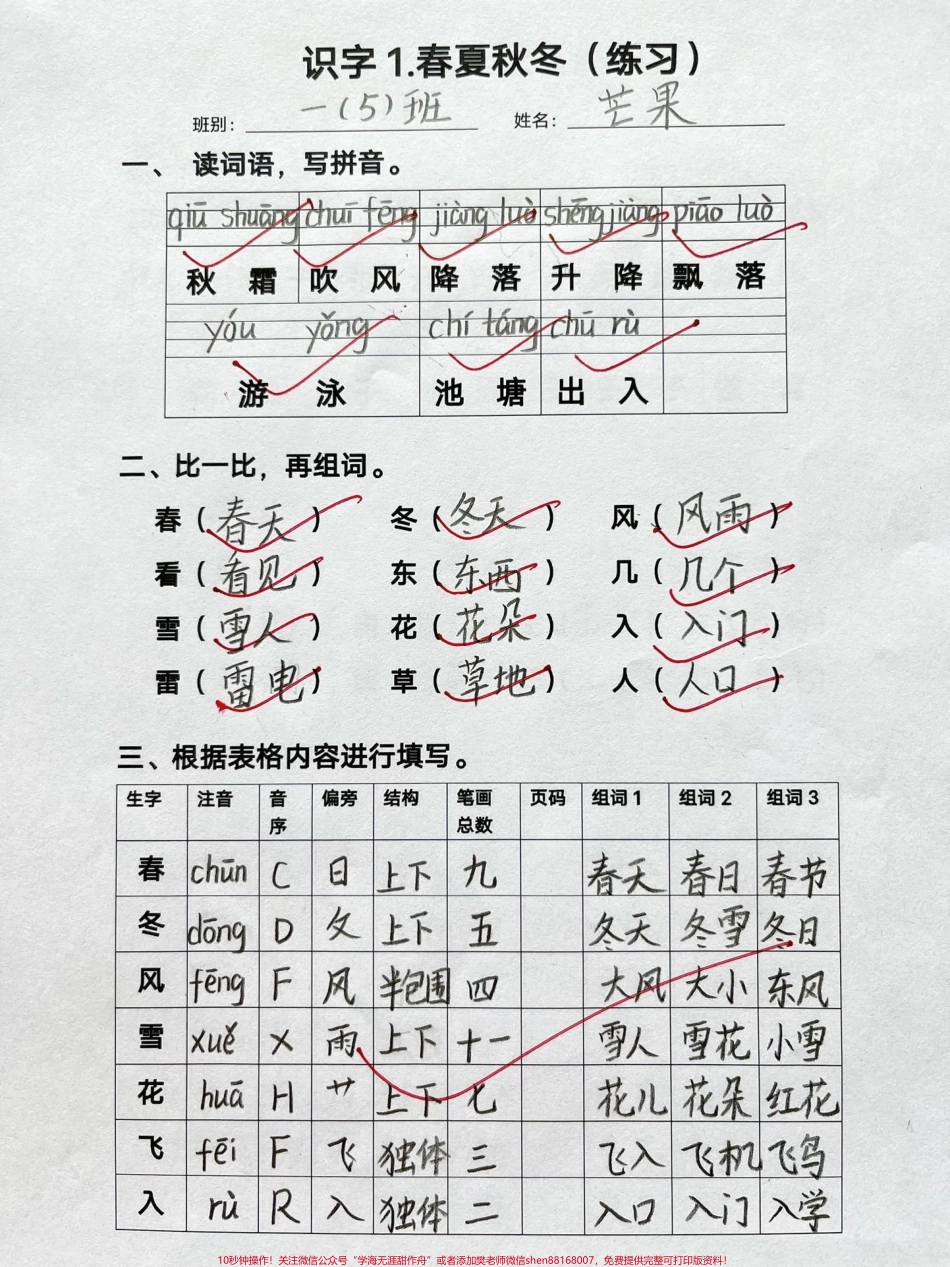 识字 1.春夏秋冬（练习）
班别：一（5）班 姓名：芒果
一、 读词语，写拼音。
qiū shuāng chuī fēng jiàng luò shēng jiàng piāo luò
秋 霜 吹 风 降 落 升 降 飘 落
yóu yǒng chí táng chū rù
游 泳 池 塘 出 入
二、比一比，再组词。
春（春天） 冬（冬天） 风（风雨）
看（看见） 东（东西） 几（几个）
雪（雪人） 花（花朵） 入（入门）
雷（雷电） 草（草地） 人（人口）
三、根据表格内容进行填写。
生字 注音 音序 偏旁 结构 笔画总数 页码 组词 1 组词 2 组词 3
春 chūn C 日 上下 九 春天 春日 春节
冬 dōng D 夂 上下 五 冬天 冬雪 冬日
风 fēng F 风 半包围 四 大风 大小 东风
雪 xuě X 雨 上下 十一 雪人 雪花 小雪
花 huā H 艹 上下 七 花儿 花朵 红花
飞 fēi F 飞 独体 三 飞入 飞机 飞鸟
入 rù R 入 独体 二 入口 入门 入学
10秒钟操作！关注微信公众号“学海无涯甜作舟”或者添加樊老师微信shen88168007，免费提供完整可打印版资料！